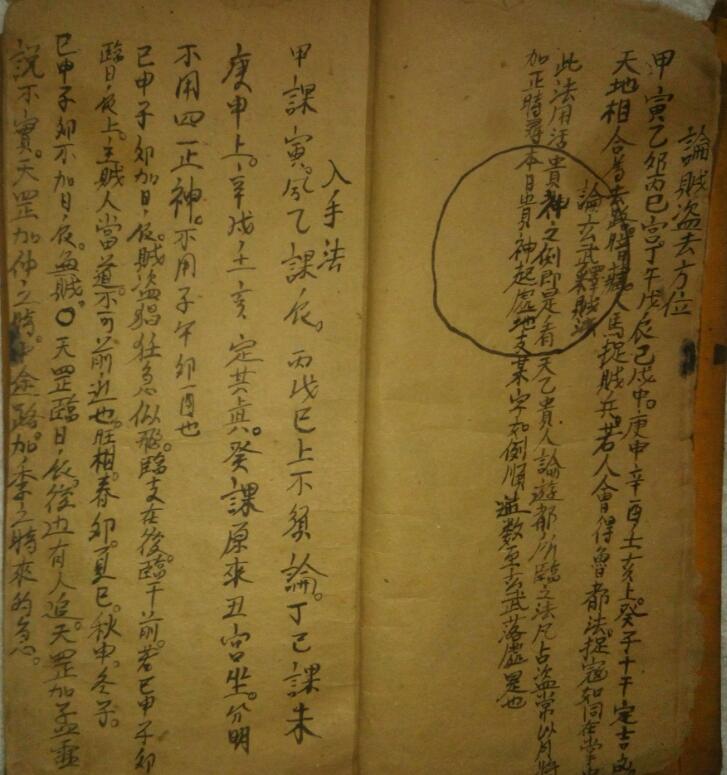 論賊盜去方位
甲寅乙卯丙巳宮丁午戊辰己戌中。庚申辛酉壬亥上。癸子十干定吉凶
天地相合為去路暗藏人馬捉賊兵若人會得魯都法。捉寇如同在掌中
論玄武釋賊
此法用活貴神之例即是者天乙貴人論遊都所臨之法凡占盜常以月將
加正時尋本日貴神起處地支某字如例順逆數至玄武落處是也
入手法
甲課寅兮乙課辰。丙戊巳上不須論。丁己課未
庚申上。辛戌壬亥定其真。癸課原來丑宮坐。分明
不用四正神。不用子午卯酉也
巳申子卯加日辰。賊盜猖狂急似飛。臨支在後。臨干前。若巳申子卯
臨日辰上。主賊人當道不可前近也。旺相。春卯。夏巳。秋申。冬子。
巳申子卯不加日辰。無賊。〇天罡臨日辰。後邊有人追。天罡加孟重
說不實。天罡加仲之時。中途路。加季之時來的急。